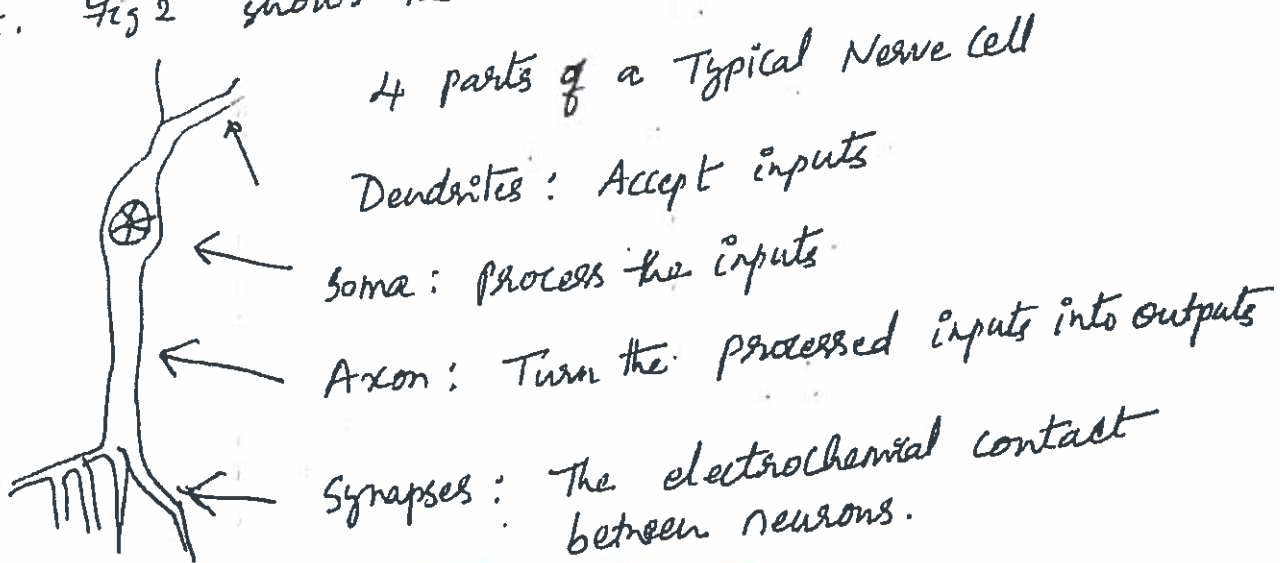 Fig 2 shows
4 parts of a Typical Nerve Cell
Dendrites : Accept inputs
Soma : process the inputs
Axon : Turn the processed inputs into outputs
Synapses : The electrochemical contact
between neurons.